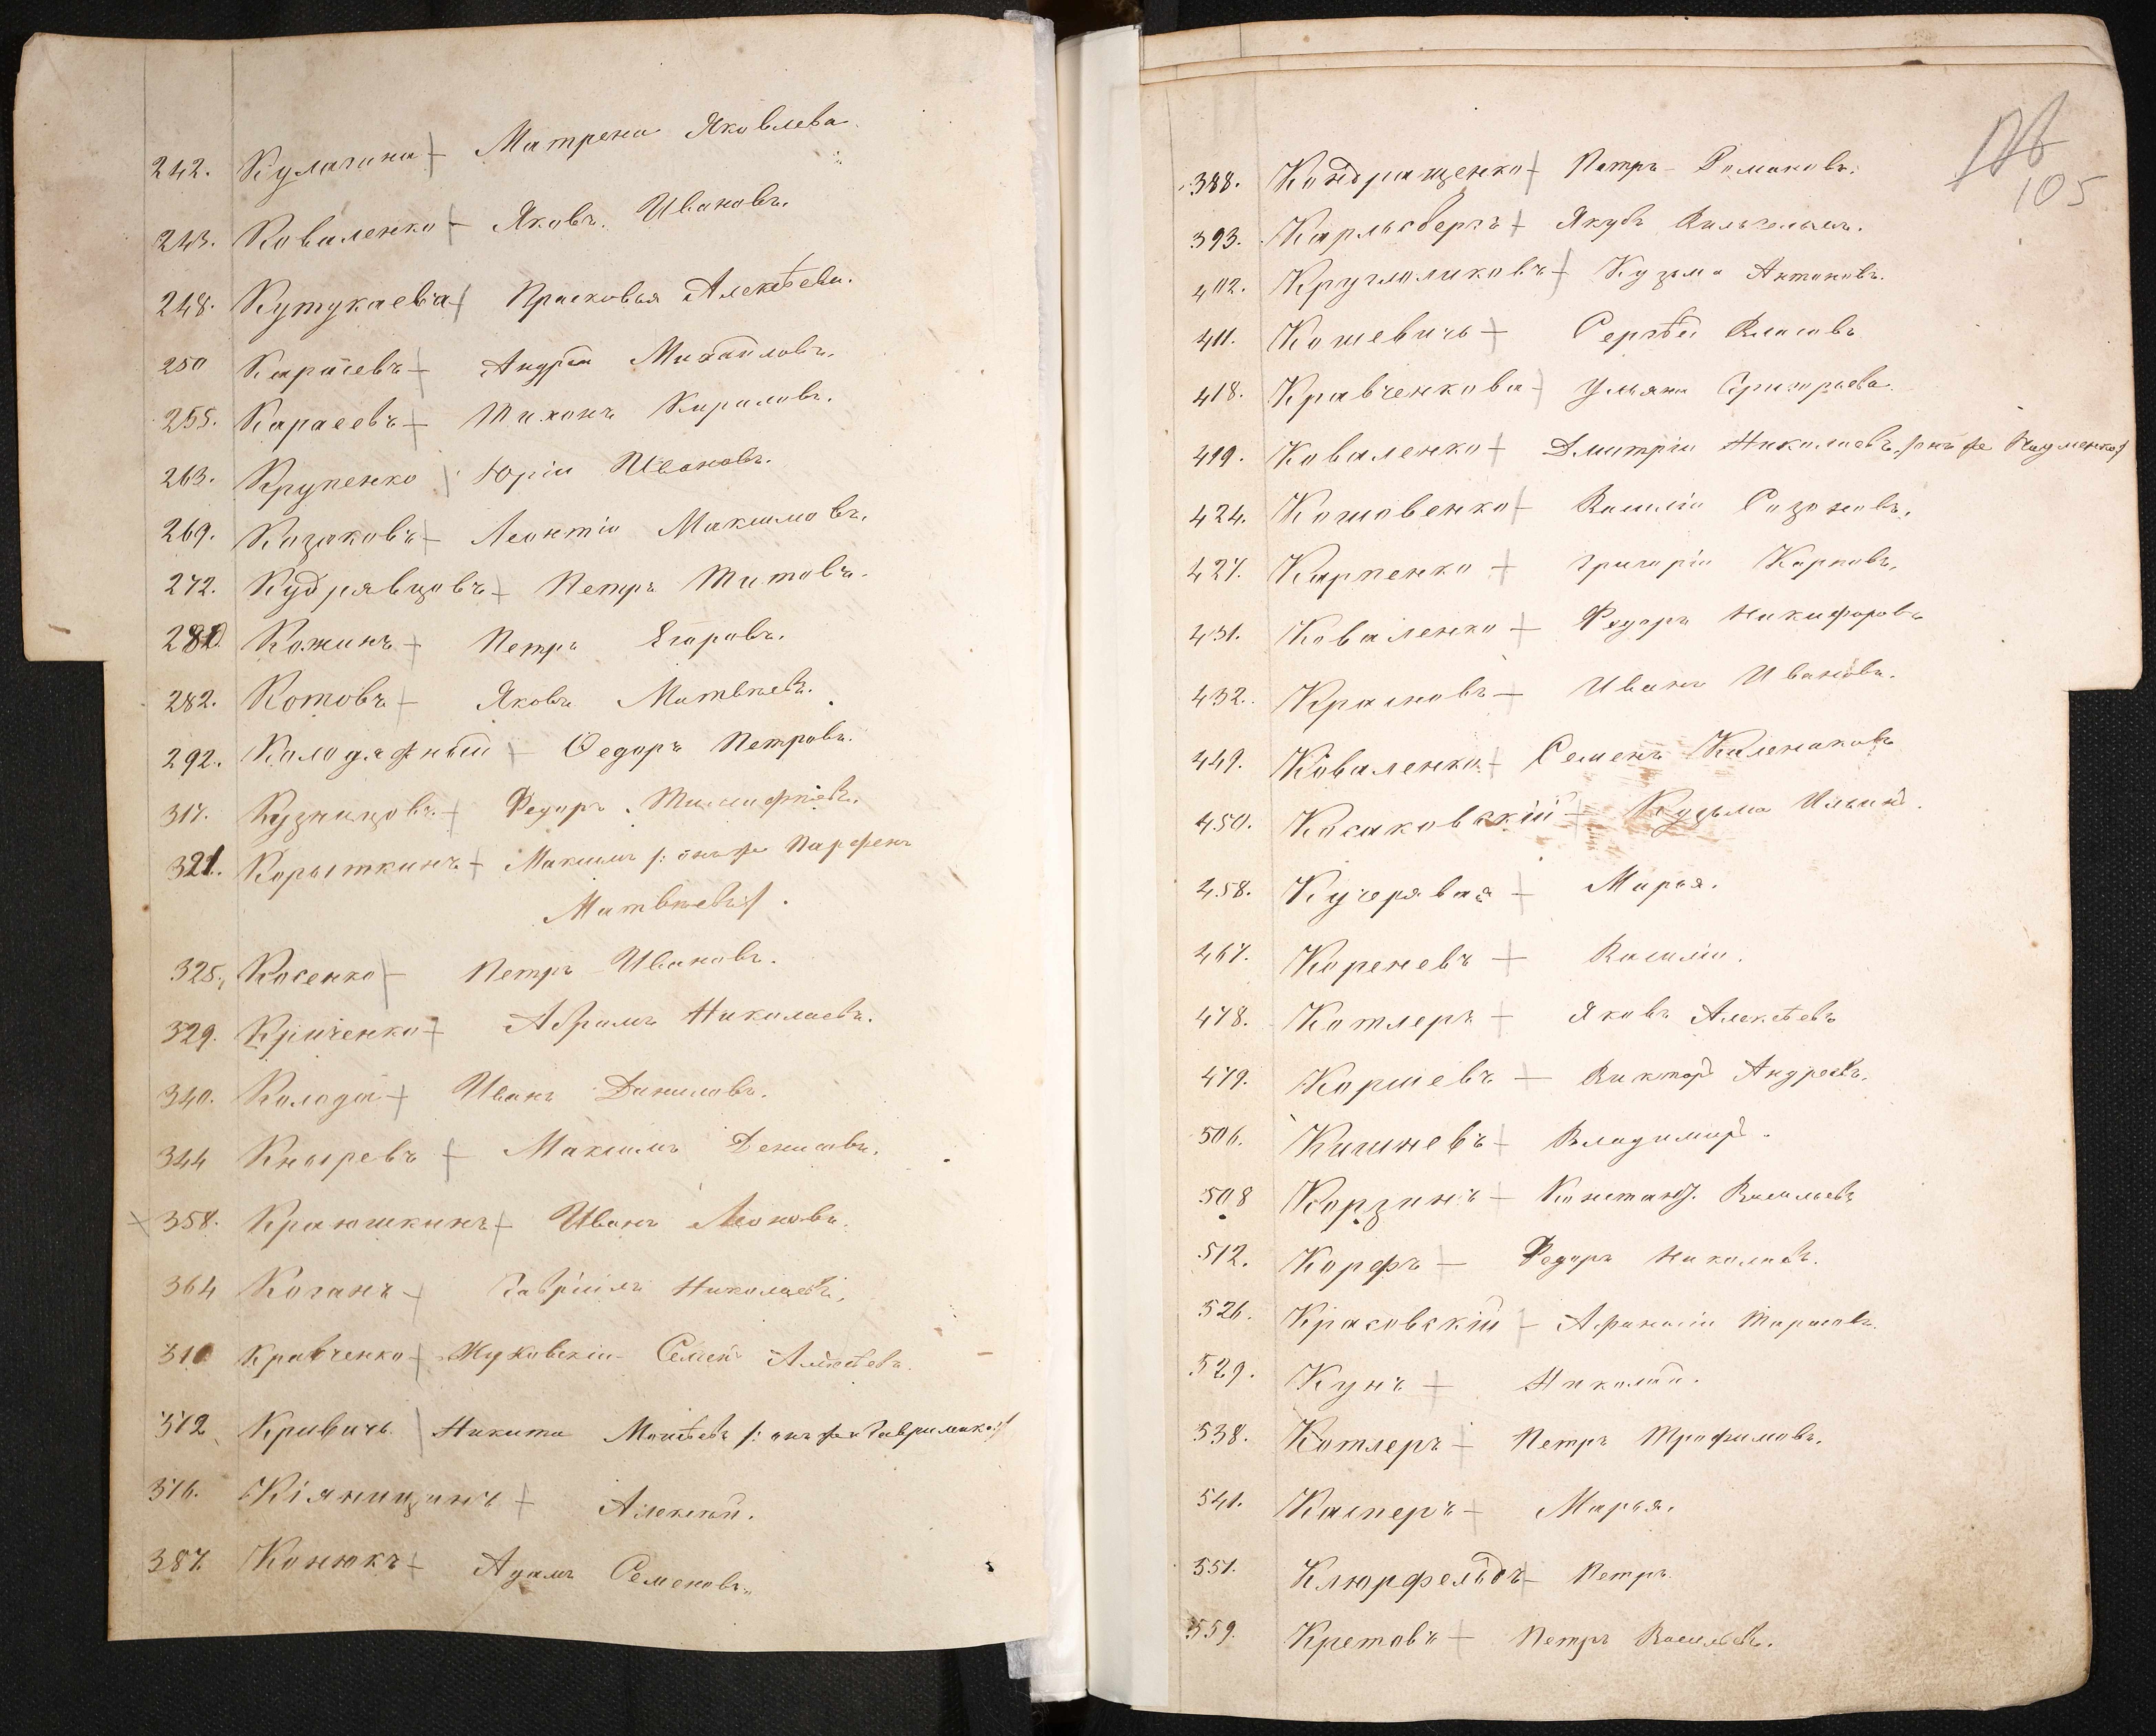 242. Кулагина Матрена Яковлева
243. Коваленко Яковъ Ивановъ.
248. Кутукаева Прасковья Алексѣева.
250 Карачевъ Андрей Михайловъ.
255. Караеевъ Тихонъ Кириловъ.
263. Крупенко Юрій Ивановъ.
269. Козаковъ Леонтій Максимовъ.
272. Кудрявцовъ Петръ Титовъ.
280. Кожинъ Петръ Егоровъ.
282. Котовъ Яковъ Матвѣевъ.
292. Колодяжный Федоръ Петровъ.
317. Кузнецовъ Федоръ Тимофѣевъ.
321. Корыткинъ Максимъ /: онъ же Парфенъ
Матвѣевъ :/.
325. Косенко Петръ Ивановъ.
329. Криченко Абрамъ Николаевъ.
340. Колода Иванъ Даниловъ.
344 Кнаревъ Максимъ Денисовъ.
358. Краюшкинъ Иванъ Леоновъ.
364 Коганъ Гавріилъ Николаевъ.
310 Кравченко Жуковскій Семенъ Алексѣевъ.
372 Кривичъ Никита Моисѣевъ /: онъ же Гавриленко :/
376. Кіяницинъ Алексѣй.
387. Конюкъ Адамъ Семеновъ.
105
388. Кондращенко Петръ Романовъ.
393. Карльсбергъ Якубъ Вильгельмъ.
402. Кругloликовъ Кузьма Антоновъ.
411. Кошевичъ Сергѣй Власовъ
418. Кравченкова Ульяна Григорьева.
419. Коваленко Дмитрій Николаевъ /: онъ же Науменко :/
424. Кошовенко Василій Созоновъ.
427. Карпенко Григорій Карповъ.
431. Коваленко Федоръ Никифоровъ
432. Красновъ Иванъ Ивановъ.
449. Коваленко Семенъ
450. Косаковскій Кузьма Ильинъ.
458. Кучерявая Марья.
467. Кореневъ Василій.
478. Котлеръ Яковъ Алексѣевъ
479. Коршевъ Викторъ Андреевъ.
506. Кишневъ Владимиръ.
508 Корзинъ Констант. Васильевъ
512. Корфъ Федоръ Николаевъ.
526. Красовскій Афанасій Тарасовъ.
529. Кунъ Николай.
538. Котлеръ Петръ Трофимовъ.
541. Касперъ Марья.
551. Клюрфельдъ Петръ
559. Кретовъ Петръ Васильевъ.